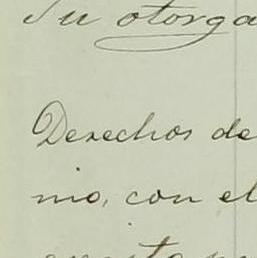 Su otorga
Derechos de
nio, con el